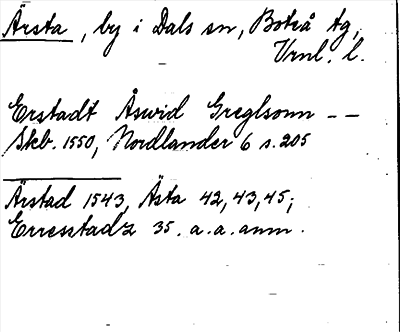 Ärsta, by i Dals sn, Boteå tg,
Vrnl. l.
Erstadt Åswid Greglsonn - -
Skb. 1550, Nordlander 6 s. 205
Ärstad 1543, Ästa 42, 43, 45;
Erresstadz 35. a. a. anm.